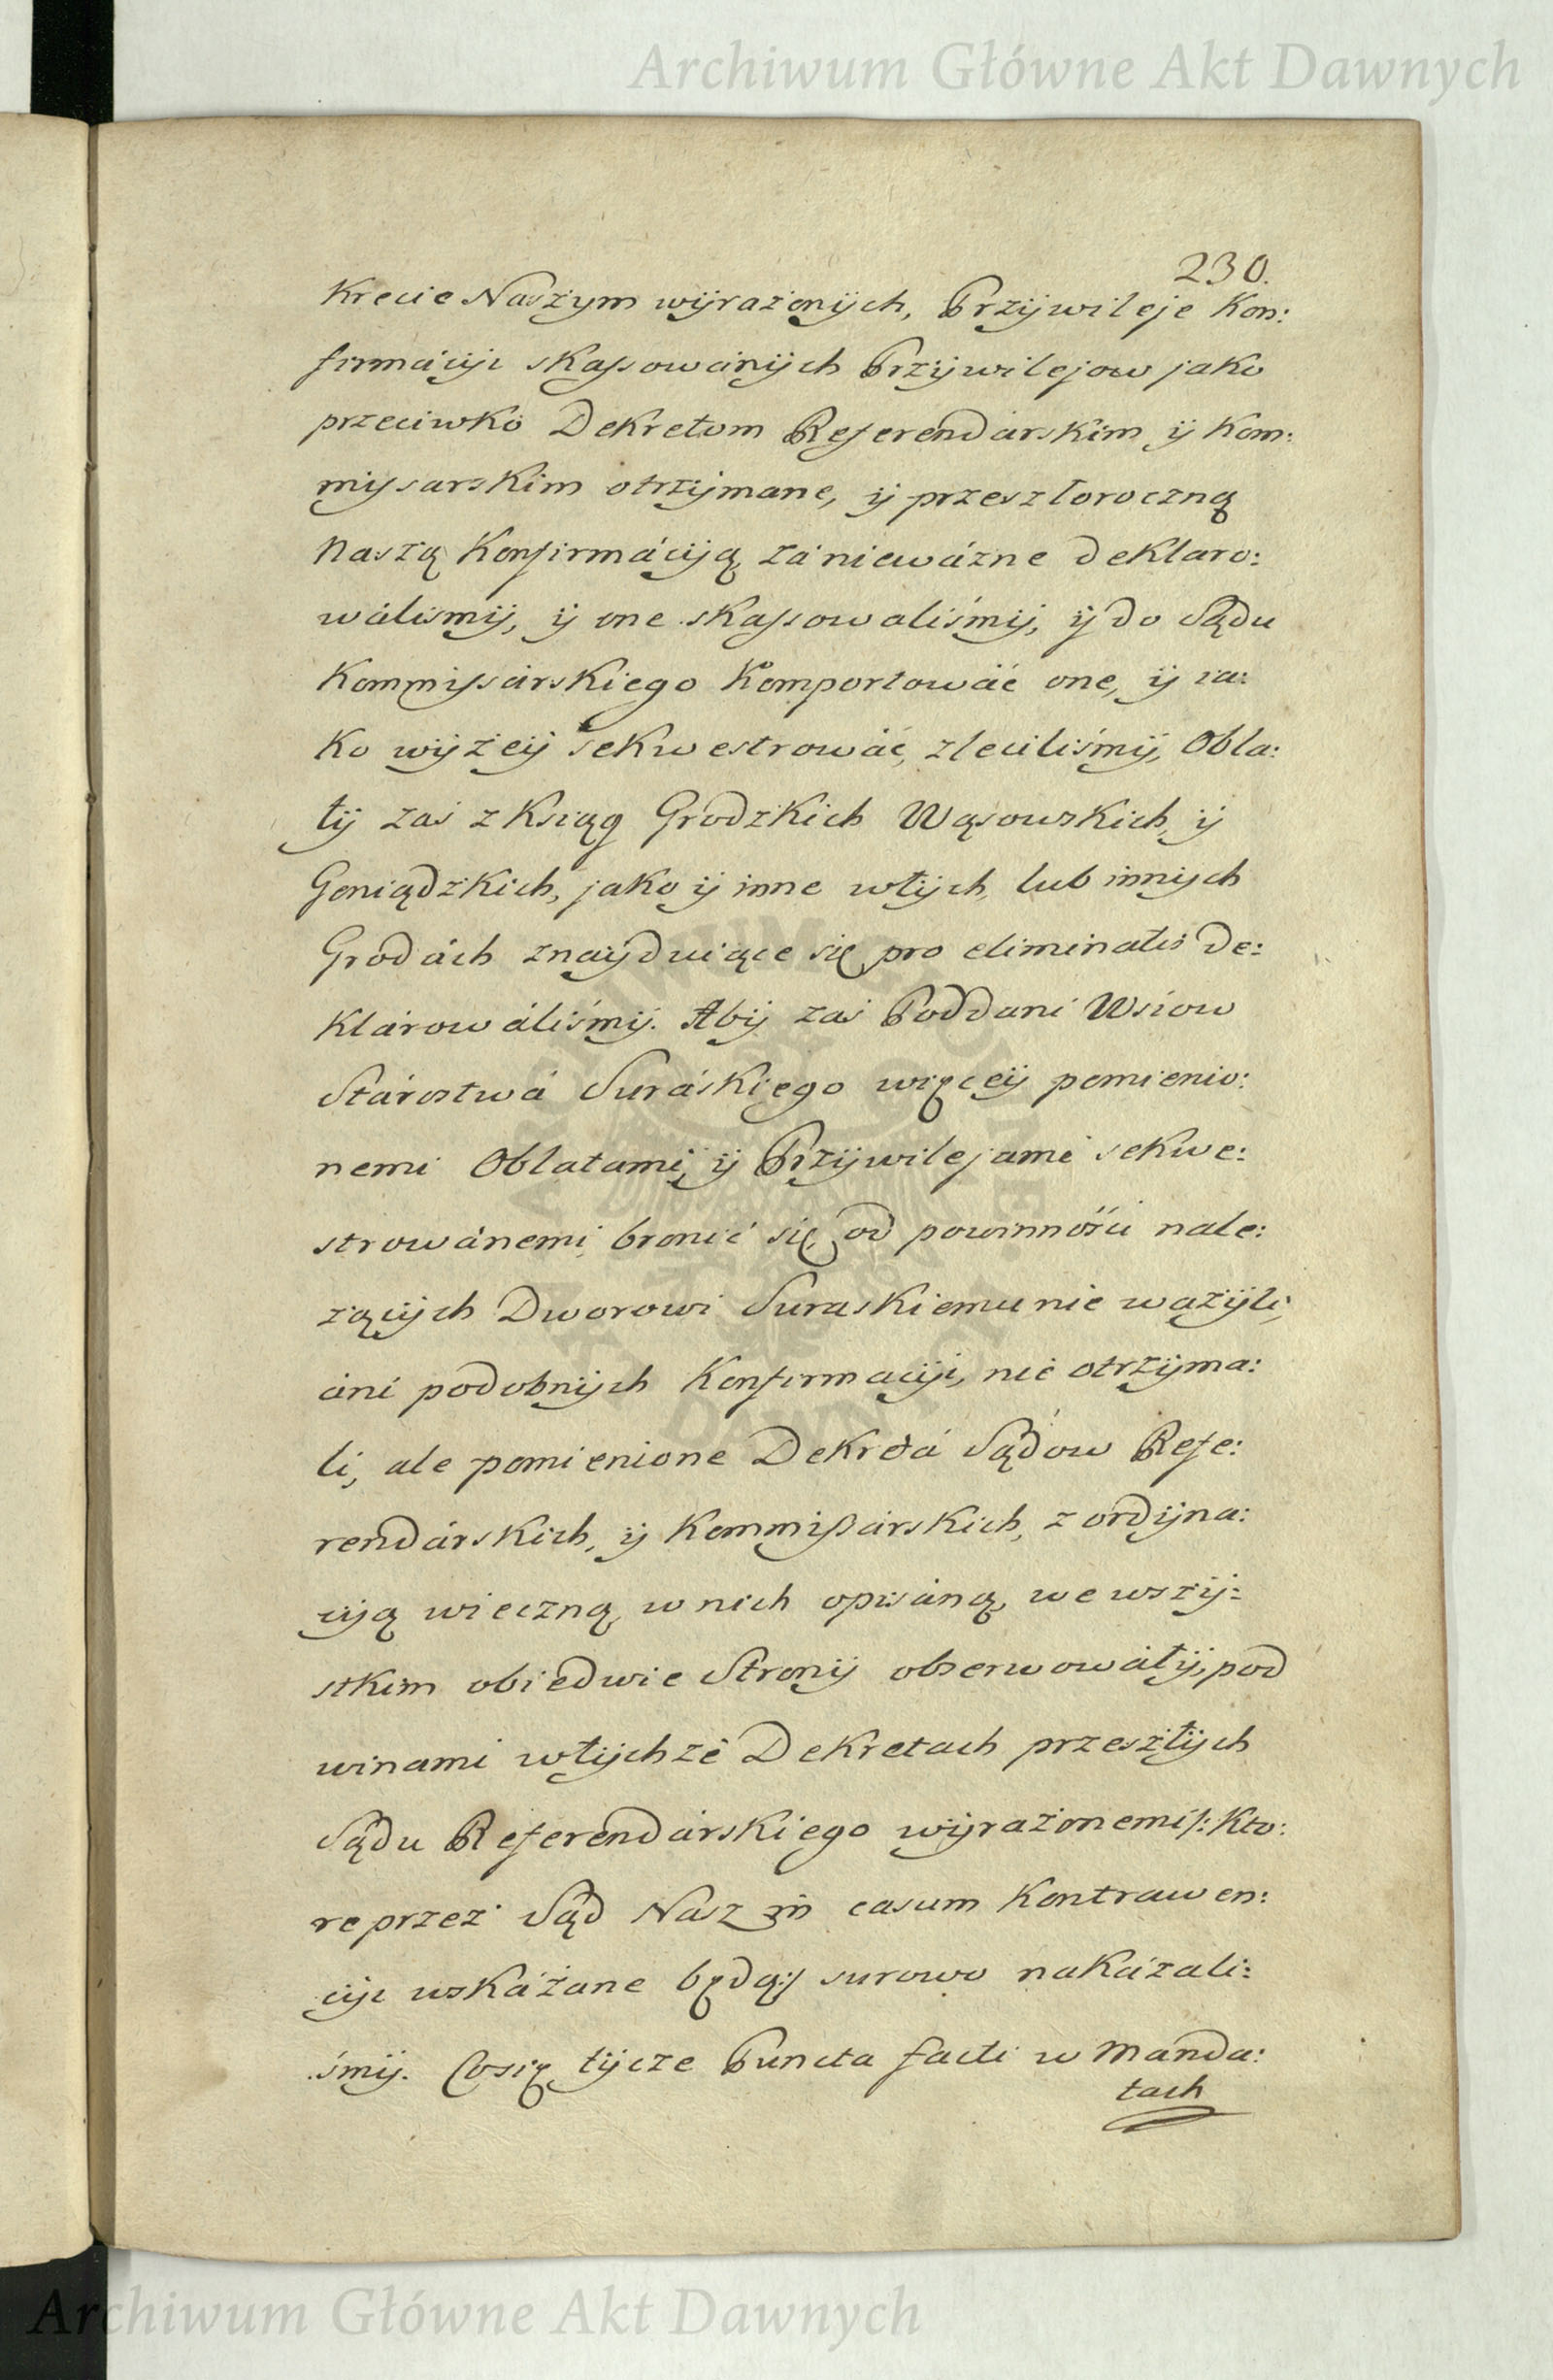 Archiwum Główne Akt Dawnych
230.
Krecie Naszym wÿrażonÿch, Przÿwileje Kon:
firmácÿi skassowánÿch Przÿwilejow jako
przeciwko Dekretom Referendárskim ÿ Kom:
missarskim otrzÿmane, ÿ przeszłoroczną
Naszą Konfirmácÿją, zá nieważne deklaro:
wálismÿ, ÿ one skassowaliśmÿ, ÿ do Sądu
Kommissárskiego Komportowáć one, ÿ ia:
ko wÿżeÿ sekwestrowáć, zleciliśmÿ, Obla:
tÿ zaś z Ksiąg Grodzkich Wąsowskich, ÿ
Goniądzkich, jako ÿ inne wtÿch, lub innÿch
Grodách znaÿduiące się pro eliminatis de:
klárowáliśmÿ. Abÿ zaś Poddani Wsiow
Stárostwá Suráskiego więceÿ pomienio:
nemi Oblatami, ÿ Przÿwilejami sekwe:
strowánemi bronić się od powinnośći nale:
zącÿch Dworowi Suraskiemu nie ważÿli,
áni podobnÿch Konfirmacÿi, nie otrzÿma:
li, ale pomienione Dekretá Sądow Refe:
rendárskich, ÿ Kommissárskich, z ordÿna:
cÿją wieczną, w nich opisáną, we wszÿ:
stkim obiedwie Stronÿ obserwowáłÿ, pod
winami wtÿchże Dekretach przeszłÿch
Sądu Referendárskiego wÿrażonemi /: Kto:
re przez Sąd Nasz in casum Kontrawen:
cÿi wskáżane będą :/ surowo nakázali:
śmÿ. Co się tÿcze Puncta facti w Manda:
tach
Archiwum Główne Akt Dawnych